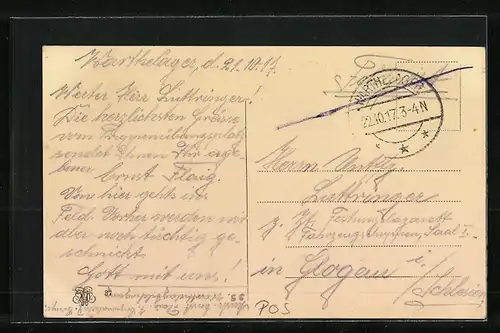 Warthelager, d. 21.10.17.
Werter Herr Luttringer!
Die herzlichsten Grüsse
vom Truppenübungsplatz
sendet Ihnen Ihr erge-
bener Ernst Flaig.
Von hier gehts ins
Feld. Vorher werden wir
aber noch tüchtig ge-
schmückt.
Gott mit uns!
WARTHELAGER
22.10.17.3-4N
Herrn
Luttringer
z. Zt. Festungslazarett
Fahrzeugschuppen, Saal I.
in Glogau i/
Schlesien
POS